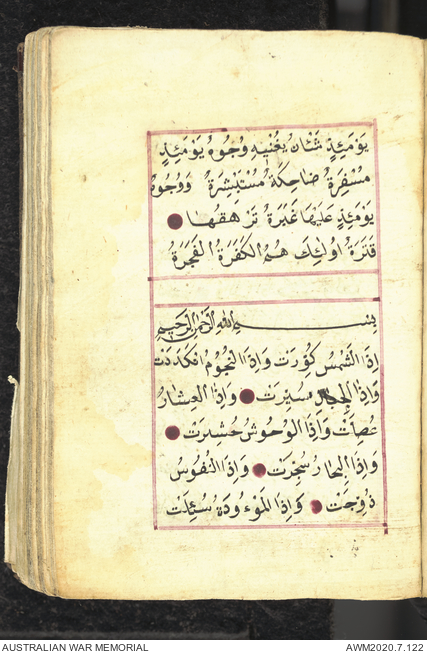 يَوْمَئِذٍ شَأْنٌ يُغْنِيهِ وُجُوهٌ يَوْمَئِذٍ
مُسْفِرَةٌ ضَاحِكَةٌ مُسْتَبْشِرَةٌ وَوُجُوهٌ
يَوْمَئِذٍ عَلَيْهَا غَبَرَةٌ تَرْهَقُهَا
قَتَرَةٌ اُولَئِكَ هُمُ الكَفَرَةُ الفَجَرَةُ
بِسْمِ اللهِ الرَّحْمنِ الرَّحِيمِ
اِذَا الشَّمْسُ كُوِّرَتْ وَاِذَا النُّجُومُ انْكَدَرَتْ
وَاِذَا الجِبَالُ سُيِّرَتْ وَاِذَا العِشَارُ
عُطِّلَتْ وَاِذَا الوُحُوشُ حُشِرَتْ
وَاِذَا البِحَارُ سُجِّرَتْ وَاِذَا النُّفُوسُ
زُوِّجَتْ وَاِذَا المَوْءُودَةُ سُئِلَتْ
AUSTRALIAN WAR MEMORIAL AWM2020.7.122